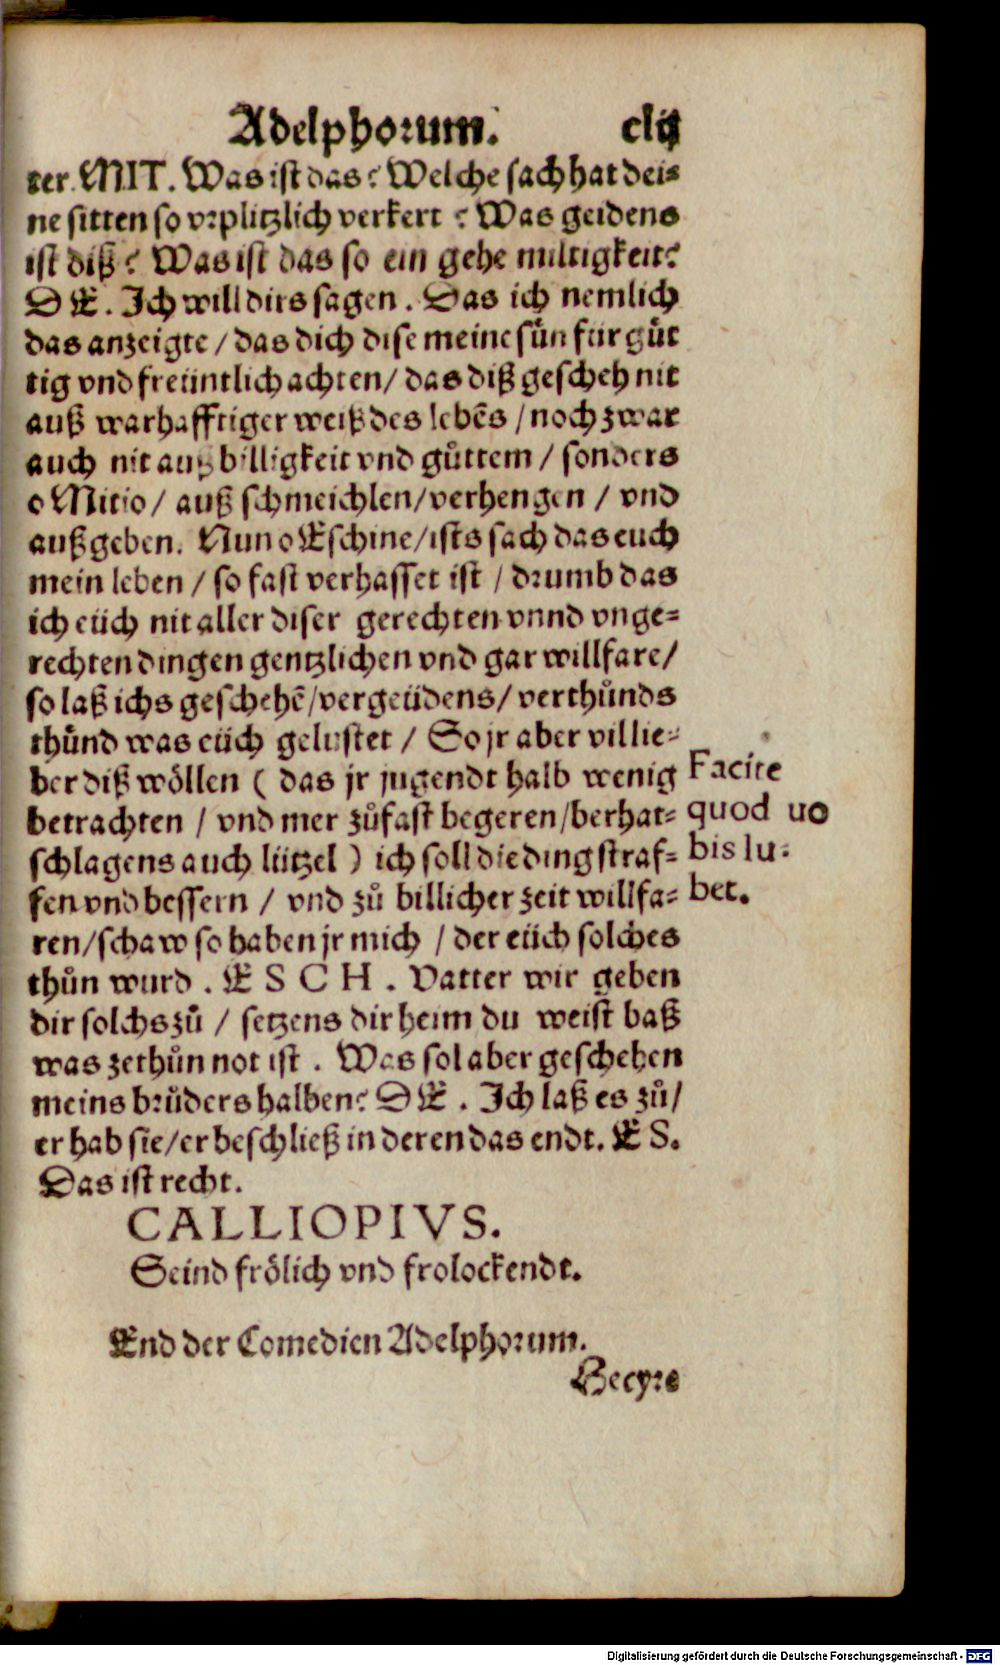 Adelphorum. clij
ter. MIT. Was ist das? Welche sach hat dei=
ne sitten so vrplitzlich verkert? Was geidens
ist diß? Was ist das so ein gehe miltigkeit?
DE. Ich will dirs sagen. Das ich nemlich
das anzeigte / das dich dise meine sün für gůt
tig vnd freüntlich achten / das diß gescheh nit
auß warhafftiger weiß des lebēs / noch zwar
auch nit auß billigkeit vnd gůttem / sonders
o Mitio / auß schmeichlen / verhengen / vnd
außgeben. Nun o Eschine / ists sach das euch
mein leben / so fast verhasset ist / drumb das
ich eüch nit aller diser gerechten vnnd vnge=
rechten dingen gentzlichen vnd gar willfare /
so laß ichs geschehē / vergeüdens / verthůnds
thůnd was eüch gelustet / So jr aber villie=
ber diß wöllen ( das jr jugendt halb wenig
betrachten / vnd mer zůfast begeren / berhat=
schlagens auch lützel ) ich soll die ding straf=
fen vnd bessern / vnd zů billicher zeit willfa=
ren / schaw so haben jr mich / der eüch solches
thůn wurd. ESCH. Vatter wir geben
dir solchs zů / setzens dir heim du weist baß
was zethůn not ist. Was sol aber geschehen
meins brůders halben? DE. Ich laß es zů /
er hab sie / er beschließ in deren das endt. ES.
Das ist recht.
Facite
quod uo
bis lu=
bet.
CALLIOPIVS.
Seind frölich vnd frolockendt.
End der Comedien Adelphorum.
Hecyre
Digitalisierung gefördert durch die Deutsche Forschungsgemeinschaft - DFG